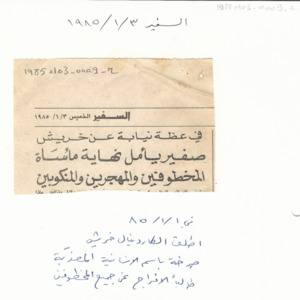 السفير ١٩٨٥/١/٣
1985 0103-0009-2
السفير الخميس ١٩٨٥/١/٣
في عظة نيابة عن خريش
صفير يأمل نهاية مأساة
المخطوفين والمهجرين والمنكوبين
في ٨٥/١/١
اطلق الكاردينال خريش
صرخة باسم الانسانية المعذبة
الافراج عن جميع المخطوفين